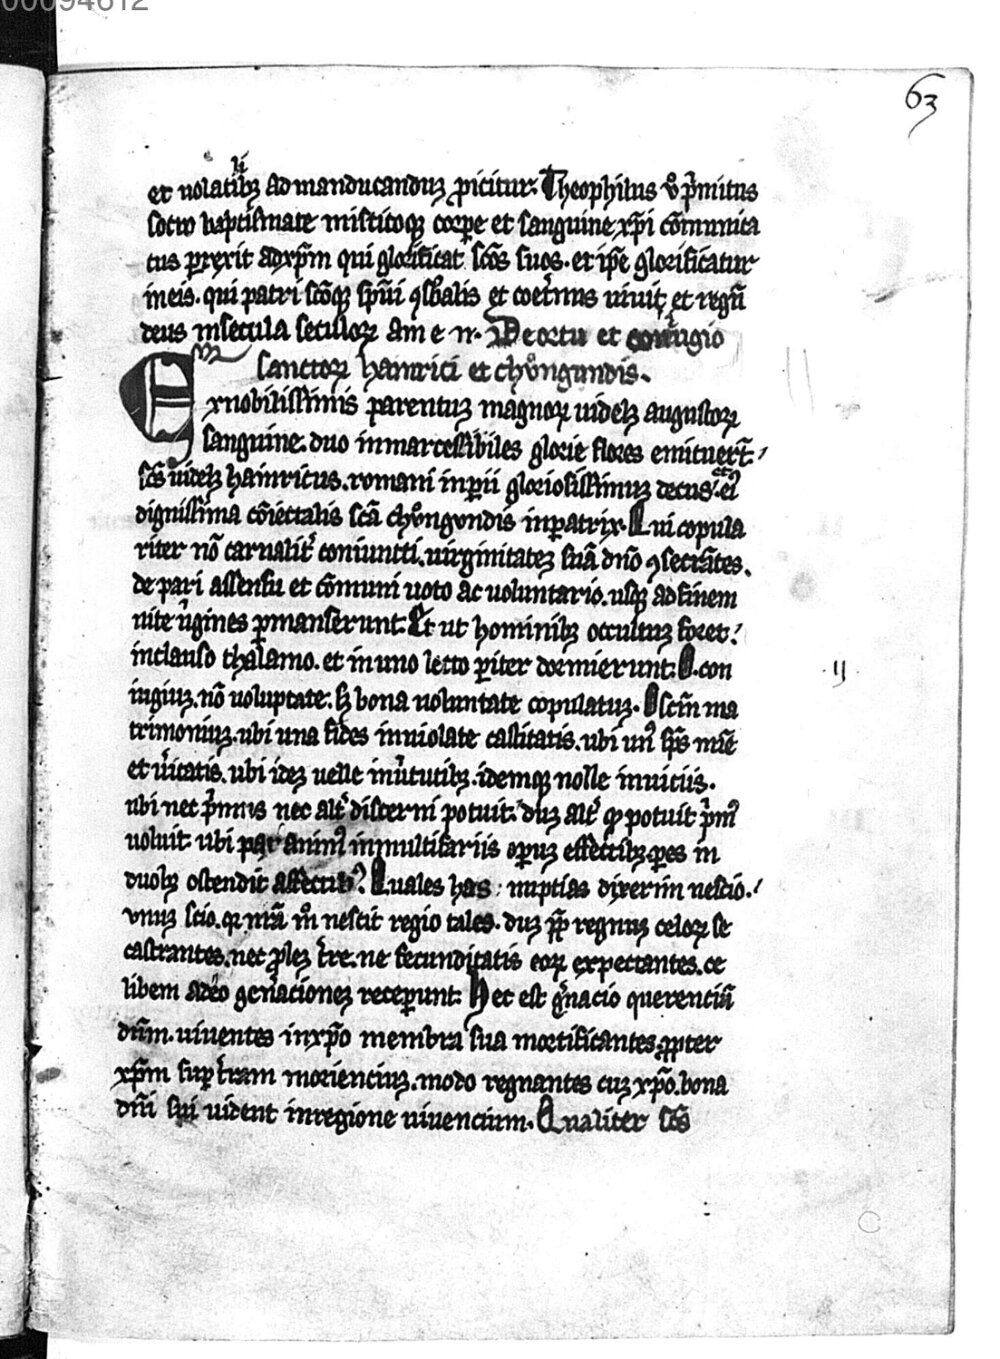 00094612
63
li
et uolatibꝫ ad manducanduꝫ ꝓicitur. Theophilus ṽ p̃mitus
socto baptismate misticoqꝫ corꝑe et sanguine xp̃i cõmunica
tus ꝑrexit ad xp̃m qui glorificat sc̃os suos. et ip̃e glorificatur
in eis. qui patri sc̃oqꝫ sp̃ui ꝯsb̃alis et coet̃nus uiuit et regñ
deus in secula seculoꝝ amen. De ortu et coniugio
sanctoꝝ hainrici et chungundis.
Ex nobilissimis parentuꝫ magnoꝝ uidelꝫ augustoꝝ
sanguine. duo inmarcessibiles glorie flores emicuer̃t.
sc̃s uidelꝫ hainricus. romani inꝑii gloriosissimuꝫ decus. et eiꝰ
dignissima cõiectalis sc̃a chungundis inꝑatrix. Qui copula
riter nõ carnalit̃ coniuncti. uirginitateꝫ suã dño ꝯsecrãtes.
de pari assensu et cõmuni uoto ac uoluntario. usqꝫ ad finem
uite ũgines ꝑmanserunt. Et ut hominibꝫ occultuꝫ foret.
in clauso thalamo. et in uno lecto ꝑiter dormierunt. O con
iugiuꝫ. nõ uoluptate. sꝫ bona uoluntate copulatuꝫ. O sc̃m ma
trimoniuꝫ. ubi una fides inuiolate castitatis. ubi unꝰ sp̃s mie
et ũitatis. ubi ideꝫ uelle in ũtutibꝫ. idemqꝫ nolle in uiciis.
ubi nec p̃mus nec alt̃ discerni potuit. duꝫ alt̃ qꝫ potuit p̃mꝰ
uoluit. ubi par animꝰ in multifariis oꝑuꝫ effectibꝫ ꝑes in
duobꝫ ostendit affectibꝰ. Quales has nuptias dixerim nescio.
unuꝫ scio. qꝫ nr̃a m̊ nescit regio tales. duꝫ ꝓp̃ regnuꝫ celoꝝ se
castrantes. nec ꝓleꝫ t̃re. ne fecunditatis eoꝝ expectantes. ce
libem adeo gen̄acioneꝫ receꝑunt. Hec est g̃nacio querenciũ
dñm. uiuentes in xp̃o membra sua mortificantes ꝓpter
xp̃m suꝑ t̃ram morienciuꝫ. modo regnantes cuꝫ xp̃o. bona
dñi sui uident in regione uiuencium. Qualiter sc̃s
·ij·